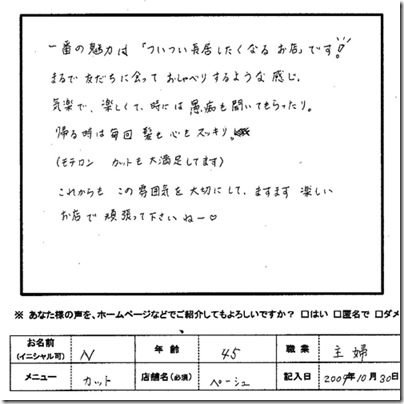 一番の魅力は「ついつい長居したくなるお店」です!
まるで友だちに会っておしゃべりするような感じ。
気楽で、楽しくて、時には愚痴も聞いてもらったり。
帰る時は毎回 髪も心もスッキリ。
(モチロン カットも大満足してます)
これからも この雰囲気を大切にして、ますます楽しい
お店で頑張って下さいねー♡
※ あなた様の声を、ホームページなどでご紹介してもよろしいですか? □はい □匿名で □ダメ
お名前(イニシャル可) N 年齢 45 職業 主婦
メニュー カット 店舗名(必須) ペーシュ 記入日 2009年10月30日